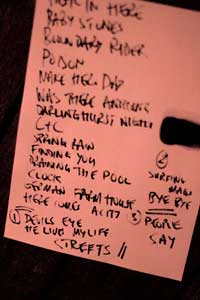 IN HERE
BABY STONES
BOUNDARY RIDER
POISON
MAKE HER DAY
WAS THERE ANYTHING
DARLINGHURST NIGHTS
HERE
LAW
FINDING YOU
DRAINING THE POOL
CLOCK
GERMAN FARM HOUSE
HERE COMES A CITY
① DEVILS EYE
HE LIVES MY LIFE
STREETS //
②
SURFING
MAG
BYE BYE
③ PEOPLE
SAY